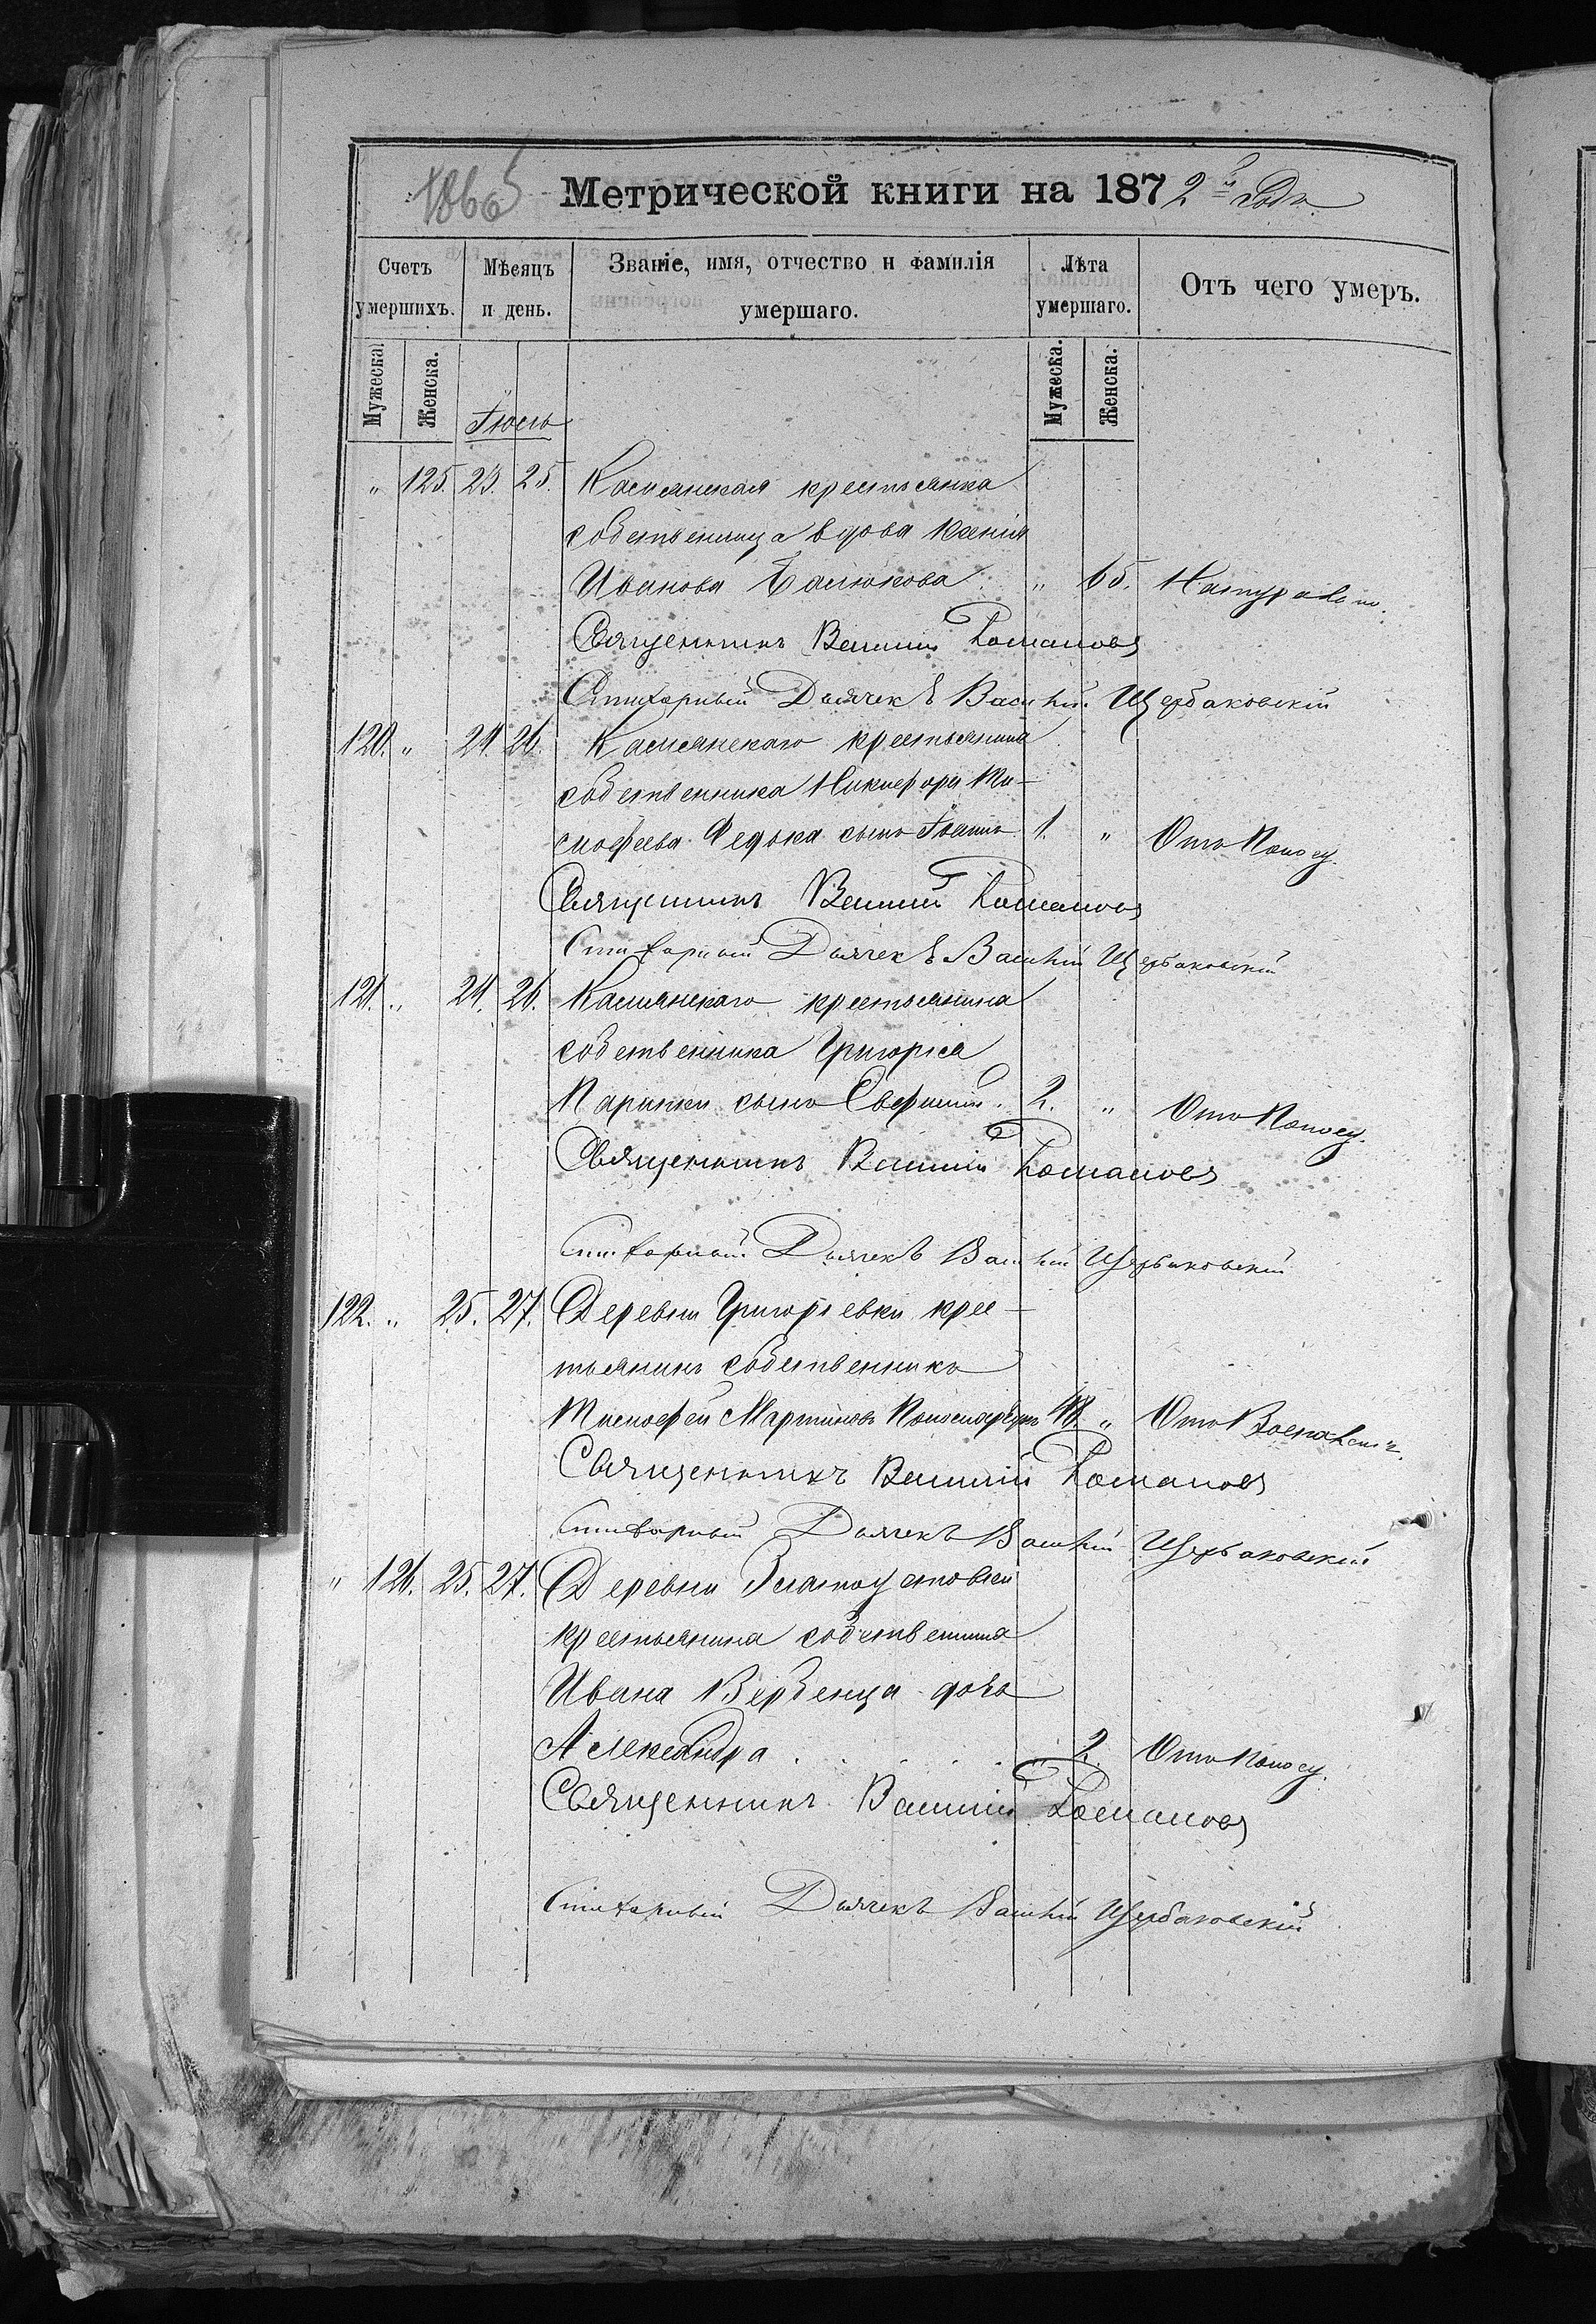 1866
Метрической книги на 1872й Годъ
Счетъ умершихъ.
Мѣсяцъ и день.
Званіе, имя, отчество и фамилія умершаго.
Лѣта умершаго.
Отъ чего умеръ.
Мужеска.
Женска.
Мужеска.
Женска.
Іюль
" 125. 23. 25. крестьянка
собственница вдова Ксенія
Иванова " 65. Натурально.
Священникъ Романовъ
Стихарный Дьячекъ Василій Щербаковскій
120. " 24. 26. крестьянина
собственника Никифора Ти-
мофеева Федька сынъ Іоаннъ 1. " Отъ Поносу.
Священникъ Романовъ
Стихарный Дьячекъ Василій Щербаковскій
121. " 24. 26. крестьянина
собственника Григорія
сынъ 2. " Отъ Поносу.
Священникъ Романовъ
Стихарный Дьячекъ Василій Щербаковскій
122. " 25. 27. Деревни Григоріевки крес-
тьянинъ собственникъ
Тимофей Мартиновъ 48 " Отъ Воспаленія.
Священникъ Романовъ
Стихарный Дьячекъ Василій Щербаковскій
" 126. 25. 27. Деревни Златоустовки
крестьянина собственника
Ивана Вербенца дочь
Александра 2. Отъ Поносу.
Священникъ Романовъ
Стихарный Дьячекъ Василій Щербаковскій